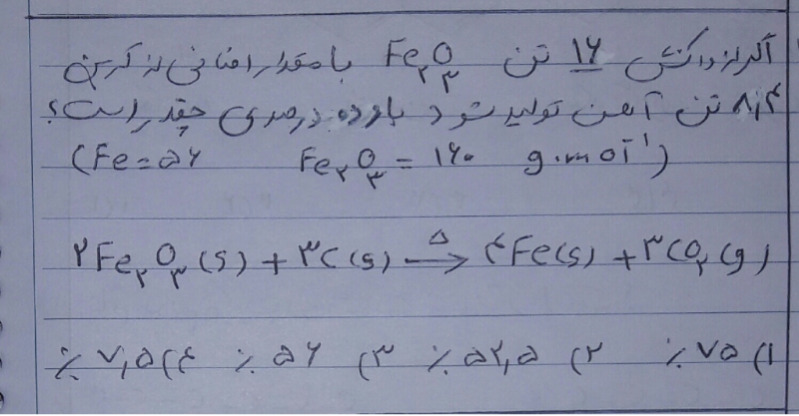 اگر از واکنش ۱۶ تن Fe₂O₃ با مقدار اضافی از کربن
۸٫۴ تن آهن تولید شود بازده درصدی چقدر است؟
(Fe = ۵۶ Fe₂O₃ = ۱۶۰ g.mol⁻¹)
۲Fe₂O₃(s) + ۳C(s) →Δ ۴Fe(s) + ۳CO₂(g)
۱) ۷۵ ٪ ۲) ۵۲٫۵ ٪ ۳) ۵۶ ٪ ۴) ۷٫۵ ٪